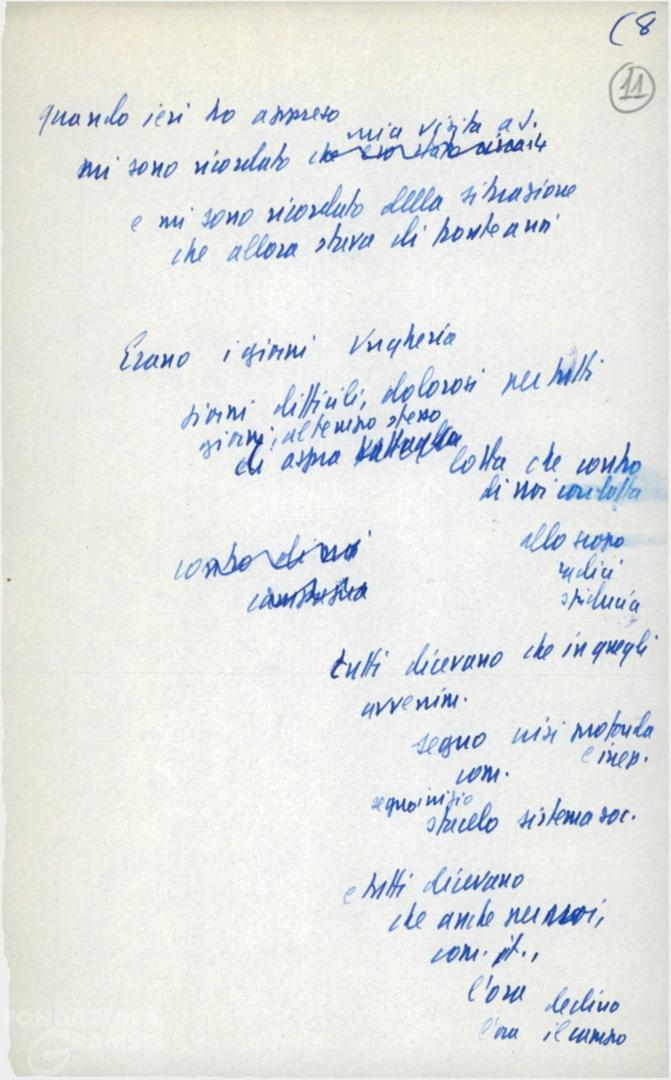 (8
11
quando ieri ho appreso
mia visita a J.
mi sono ricordato che
e mi sono ricordato della situazione
che allora stava di fronte a noi
Erano i giorni Ungheria
giorni difficili, dolorosi per tutti
giorni, al tempo stesso
di aspra battaglia lotta che contro
di noi condotta
allo scopo
contro di noi
radici
campagna
sfiducia
tutti dicevano che in quegli
avvenim.
segno crisi profonda
e irrep.
com.
segno inizio
sfacelo sistema soc.
e tutti dicevano
che anche per noi,
com. it.,
l'ora declino
l'ora il
FONDAZIONE